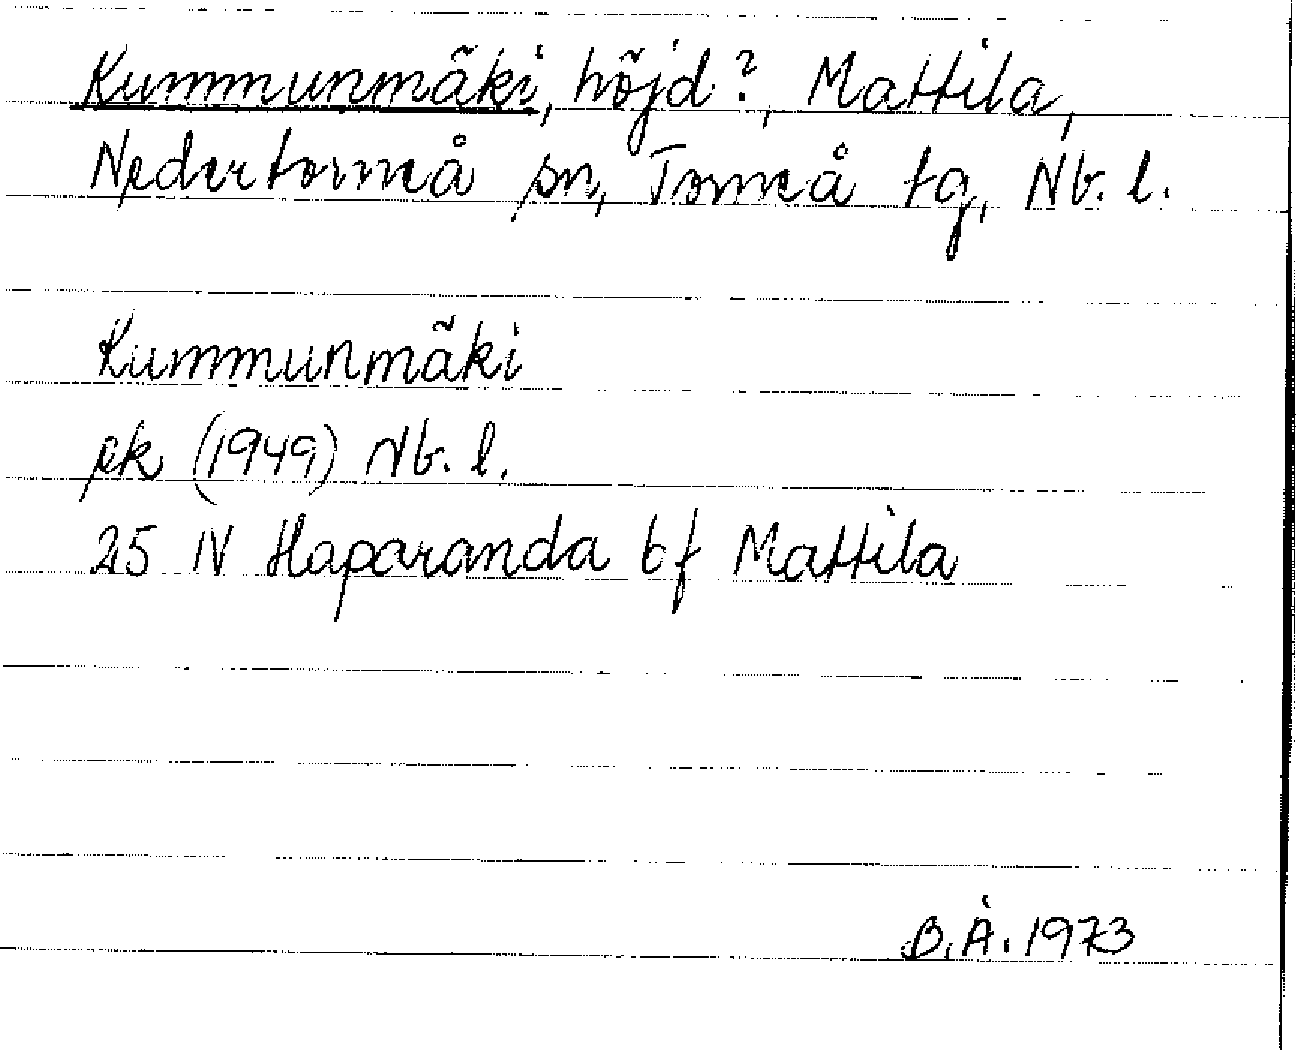 Kummunmäki, höjd?, Mattila,
Nedertorneå sn, Torneå tg, Nb. l.
Kummunmäki
ek (1949) Nb. l.
25 N Haparanda bf Mattila
B.Å. 1973